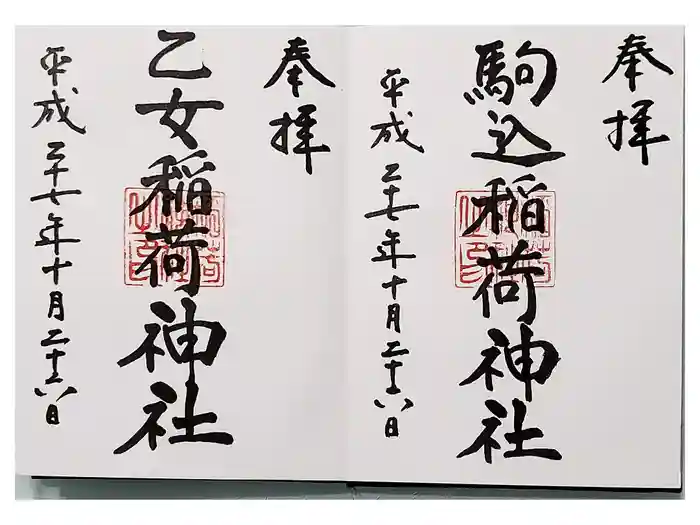 奉拝
駒込稲荷神社
平成二十七年十月二十六日
奉拝
乙女稲荷神社
平成二十七年十月二十六日